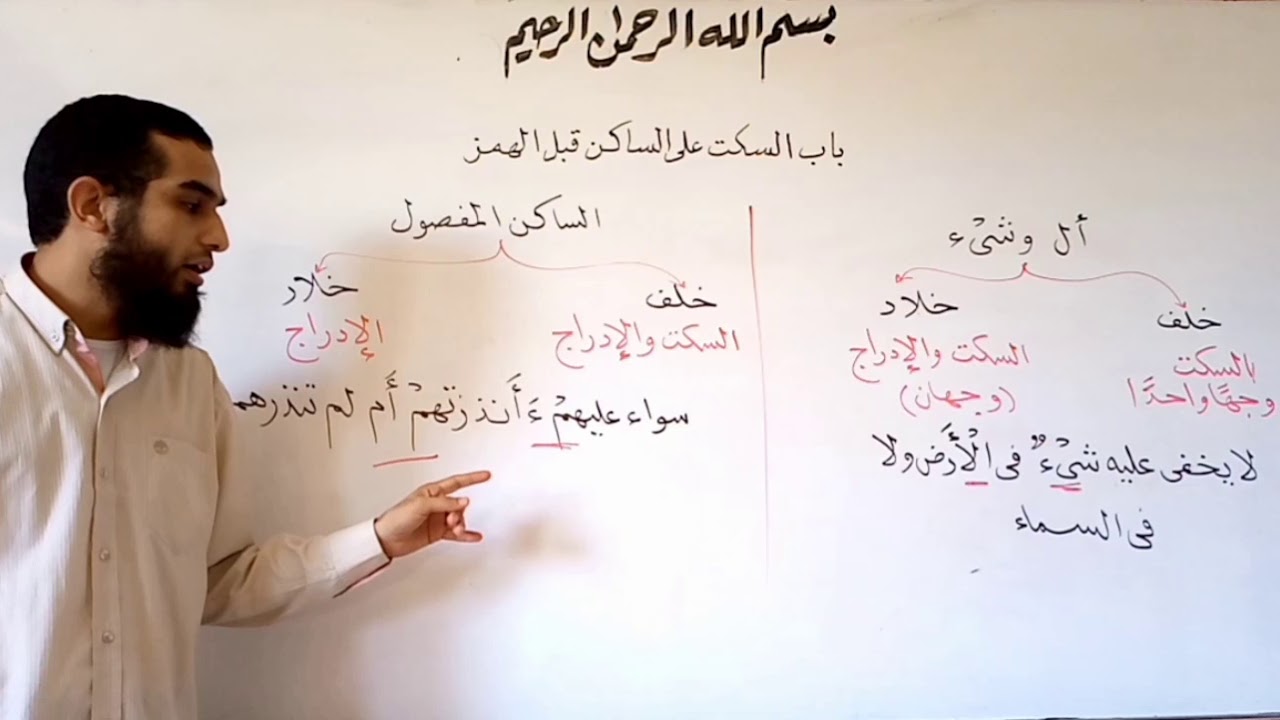 بسم الله الرحمن الرحيم
باب السكت على الساكن قبل الهمز
أل وشىْء
خلف
بالسكت
وجهًا واحدًا
خلاد
السكت والإدراج
(وجهان)
لا يخفى عليه شىْءٌ فى الْأَرض ولا
فى السماء
الساكن المفصول
خلف
السكت والإدراج
خلاد
الإدراج
سواء عليهمْ ءَأَنذرتهمْ أَم لم تنذرهم